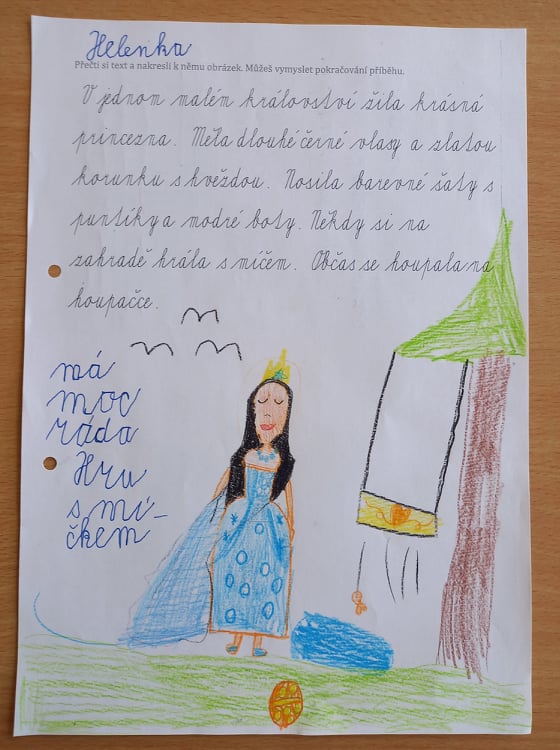 Helenka
Přečti si text a nakresli k němu obrázek. Můžeš vymyslet pokračování příběhu.
V jednom malém království žila krásná
princezna. Měla dlouhé černé vlasy a zlatou
korunku s hvězdou. Nosila barevné šaty s
puntíky a modré boty. Někdy si na
zahradě hrála s míčem. Občas se houpala na
houpačce.
má
moc
ráda
Hru
s mí-
čkem